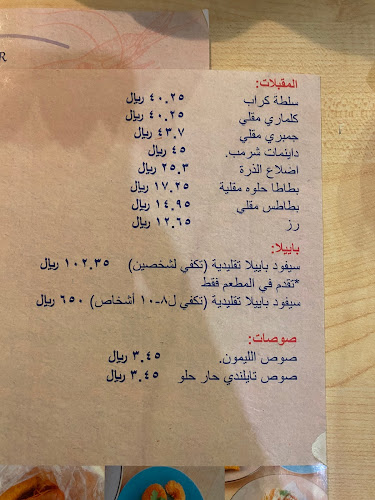 R
المقبلات:
سلطة كراب ٤٠.٢٥ ريال
كلماري مقلي ٤٠.٢٥ ريال
جمبري مقلي ٤٣.٧ ريال
داينمات شرمب. ٤٥ ريال
اضلاع الذرة ٢٥.٣ ريال
بطاطا حلوه مقلية ١٧.٢٥ ريال
بطاطس مقلي ١٤.٩٥ ريال
رز ١٢.٦٥ ريال
باييلا:
سيفود باييلا تقليدية (تكفي لشخصين) ١٠٢.٣٥ ريال
*تقدم في المطعم فقط
سيفود باييلا تقليدية (تكفي ل٨-١٠ أشخاص) ٦٥٠ ريال
صوصات:
صوص الليمون. ٣.٤٥ ريال
صوص تايلندي حار حلو ٣.٤٥ ريال